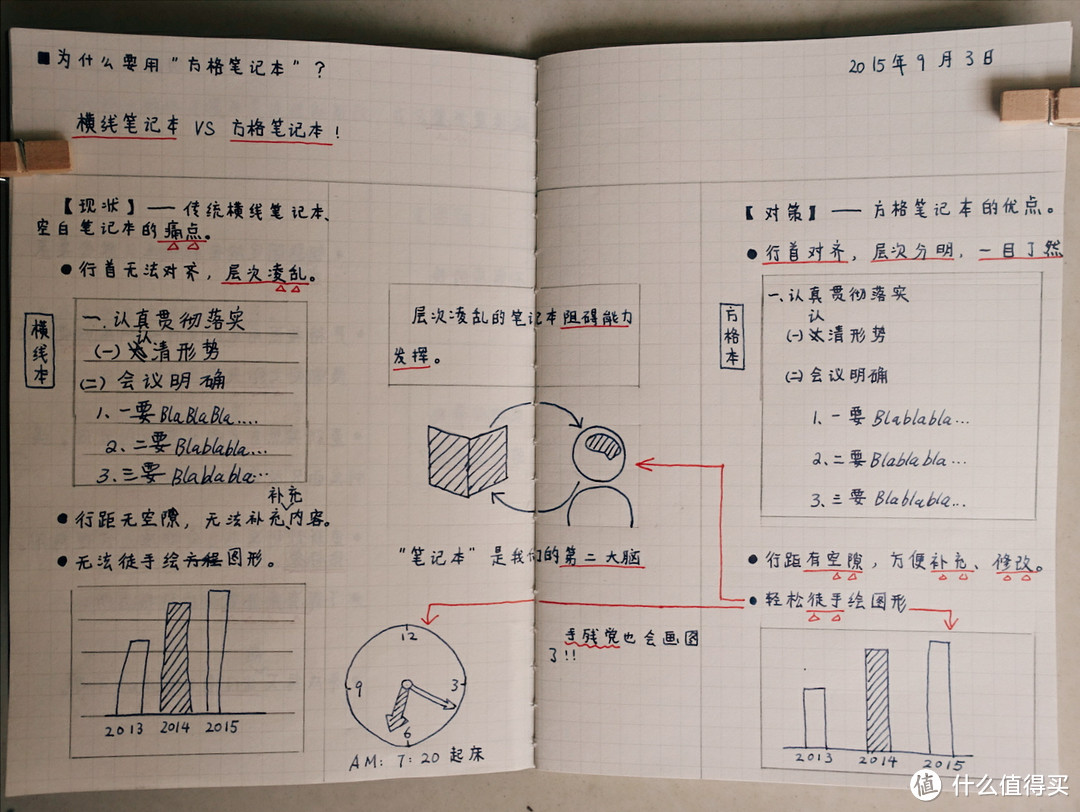 ■为什么要用“方格笔记本”？
2015年9月3日
横线笔记本 VS 方格笔记本！
【现状】——传统横线笔记本、
空白笔记本的痛点。
●行首无法对齐，层次凌乱。
横线本
一.认真贯彻落实
认
(一)清形势
(二)会议明确
1、一要BlaBlaBla....
2、二要Blablabla...
3、三要Blablabla...
补充
●行距无空隙，无法补充内容。
●无法徒手绘方程图形。
2013 2014 2015
层次凌乱的笔记本阻碍能力
发挥。
“笔记本”是我们的第二大脑
12
9 3
6
AM：7：20 起床
手残党也会画图
了!!
【对策】——方格笔记本的优点。
●行首对齐，层次分明，一目了然
方格本
一、认真贯彻落实
认
(一)太清形势
(二)会议明确
1、一要Blablabla...
2、二要Blablabla...
3、三要Blablabla...
●行距有空隙，方便补充、修改。
●轻松徒手绘图形
2013 2014 2015
值 什么值得买